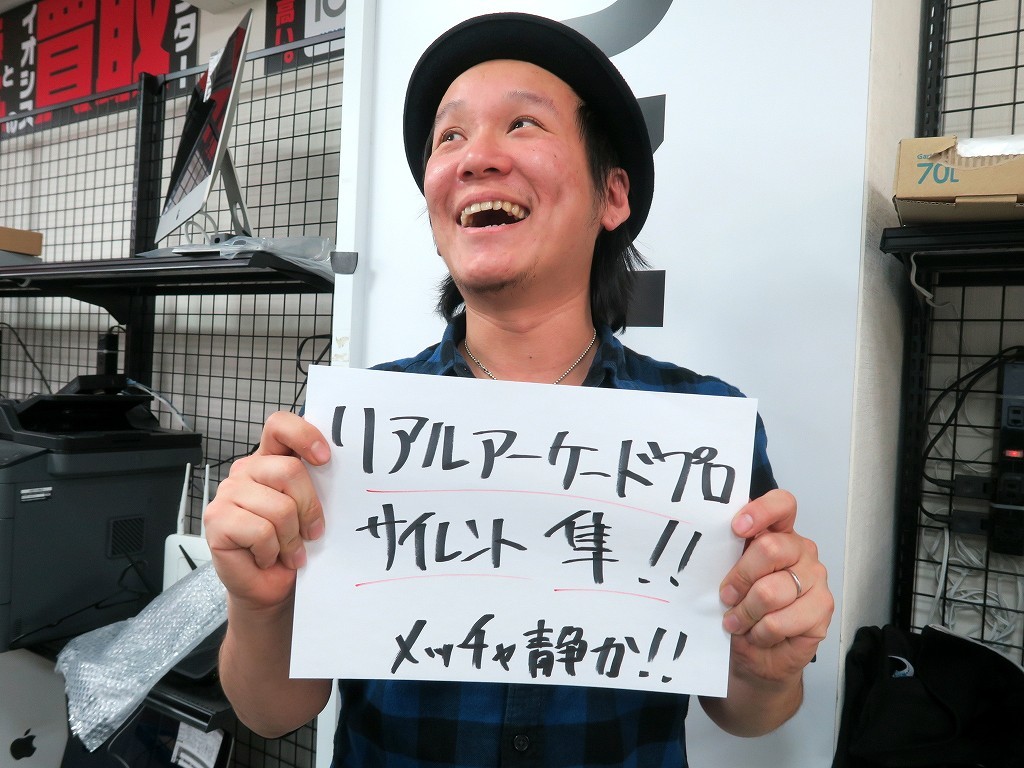 イオシス
買取
リアルアーケードプロ
サイレント 隼!!
メッチャ静か!!
70L